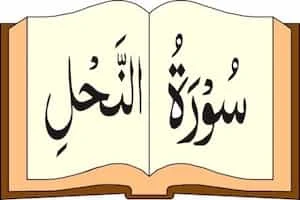 سُورَةُ النَّحْلِ